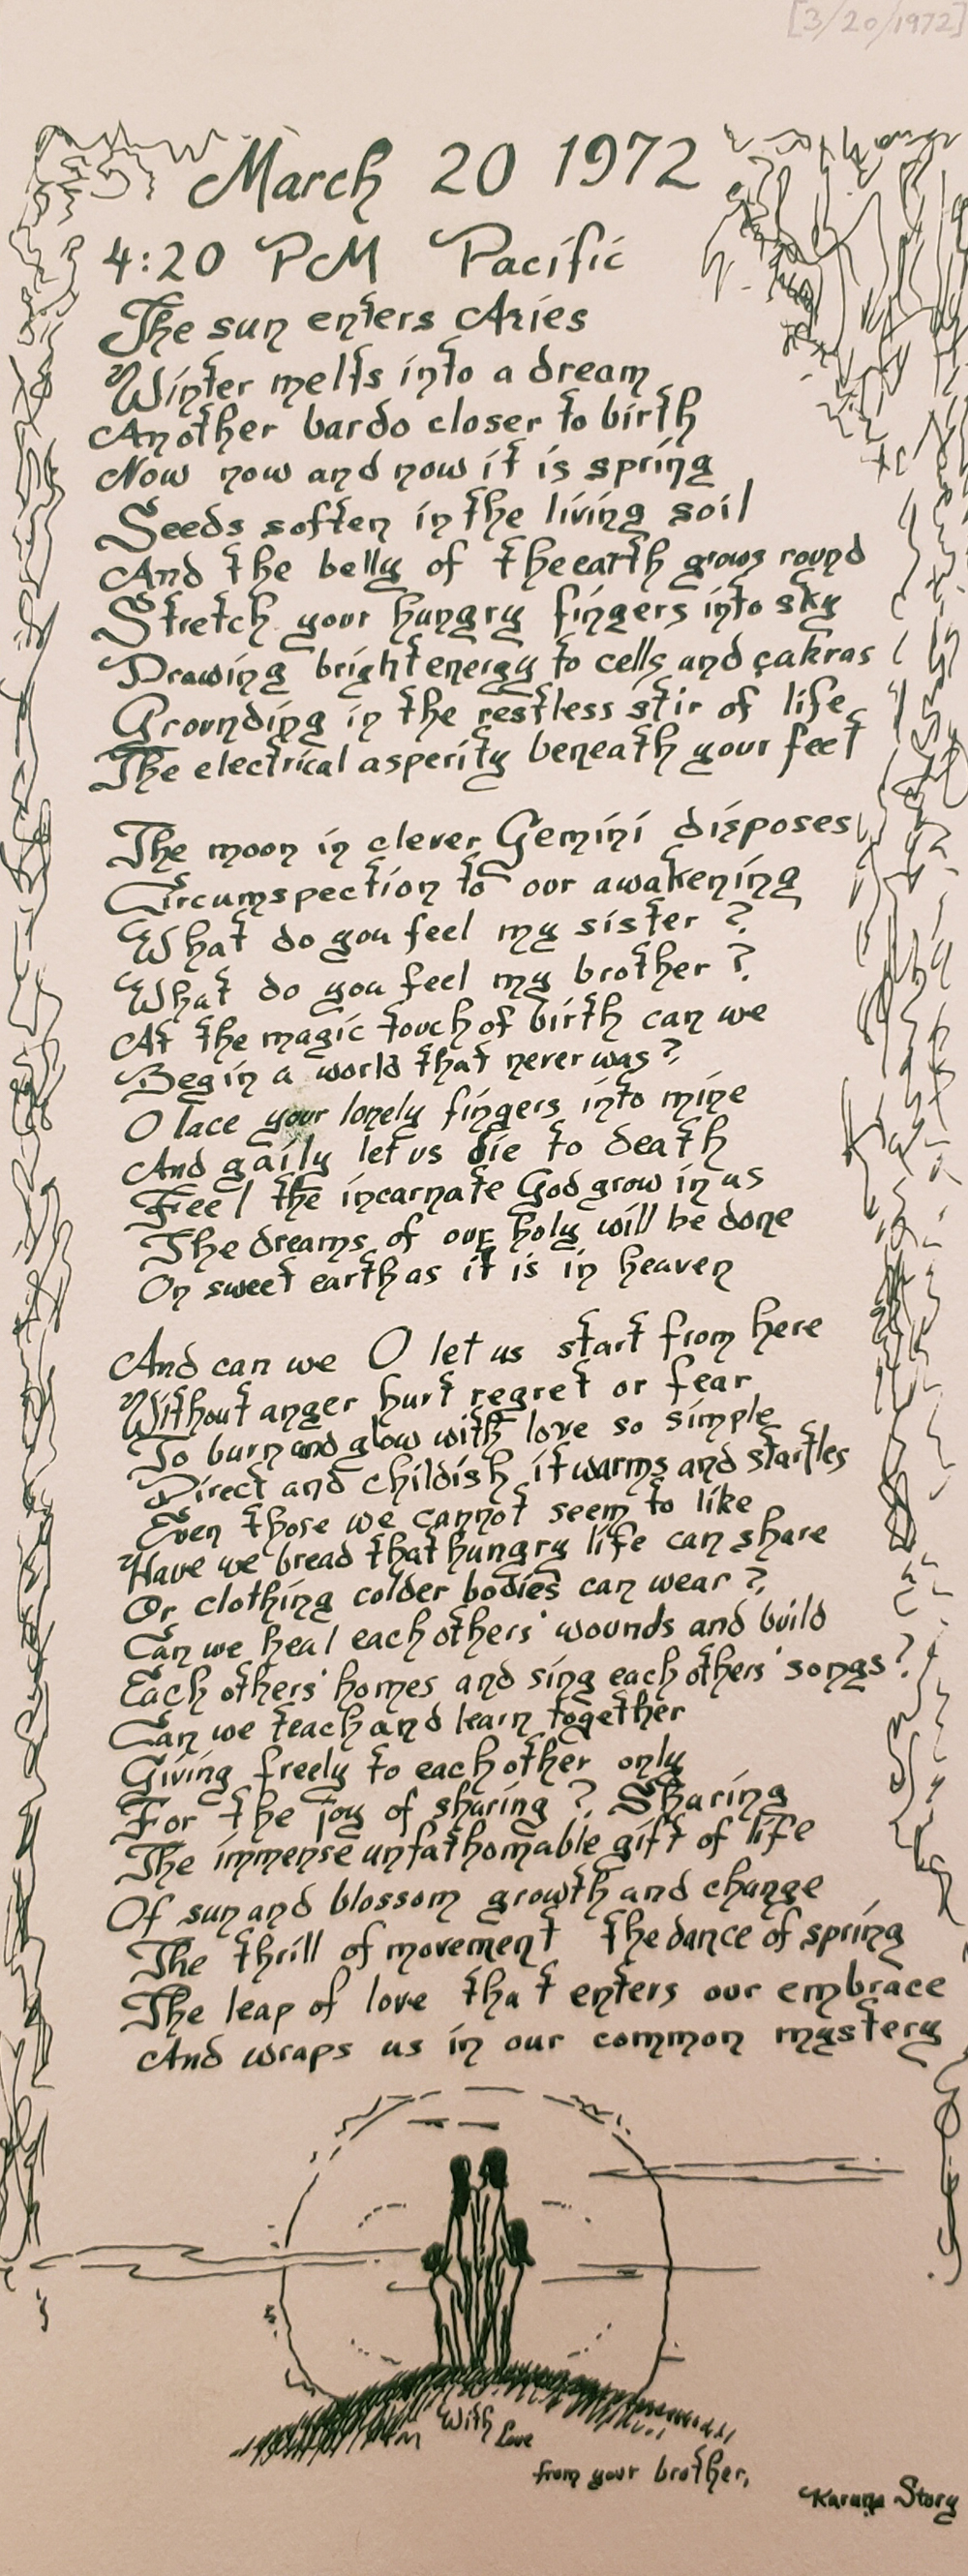 [3/20/1972]
March 20 1972
4:20 PM Pacific
The sun enters Aries
Winter melts into a dream
Another bardo closer to birth
Now now and now it is spring
Seeds soften in the living soil
And the belly of the earth grows round
Stretch your hungry fingers into sky
Drawing bright energy to cells and çakras
Grounding in the restless stir of life
The electrical asperity beneath your feet
The moon in clever Gemini disposes
Circumspection to our awakening
What do you feel my sister?
What do you feel my brother?
At the magic touch of birth can we
Begin a world that never was?
O lace your lonely fingers into mine
And gaily let us die to death
Feel the incarnate God grow in us
The dreams of our holy will be done
On sweet earth as it is in heaven
And can we O let us start from here
Without anger hurt regret or fear
To burn and glow with love so simple
Direct and childish it warms and startles
Even those we cannot seem to like
Have we bread that hungry life can share
Or clothing colder bodies can wear?
Can we heal each others' wounds and build
Each others' homes and sing each others' songs?
Can we teach and learn together
Giving freely to each other only
For the joy of sharing? Sharing
The immense unfathomable gift of life
Of sun and blossom growth and change
The thrill of movement the dance of spring
The leap of love that enters our embrace
And wraps us in our common mystery
With Love
from your brother,
Karuna Story